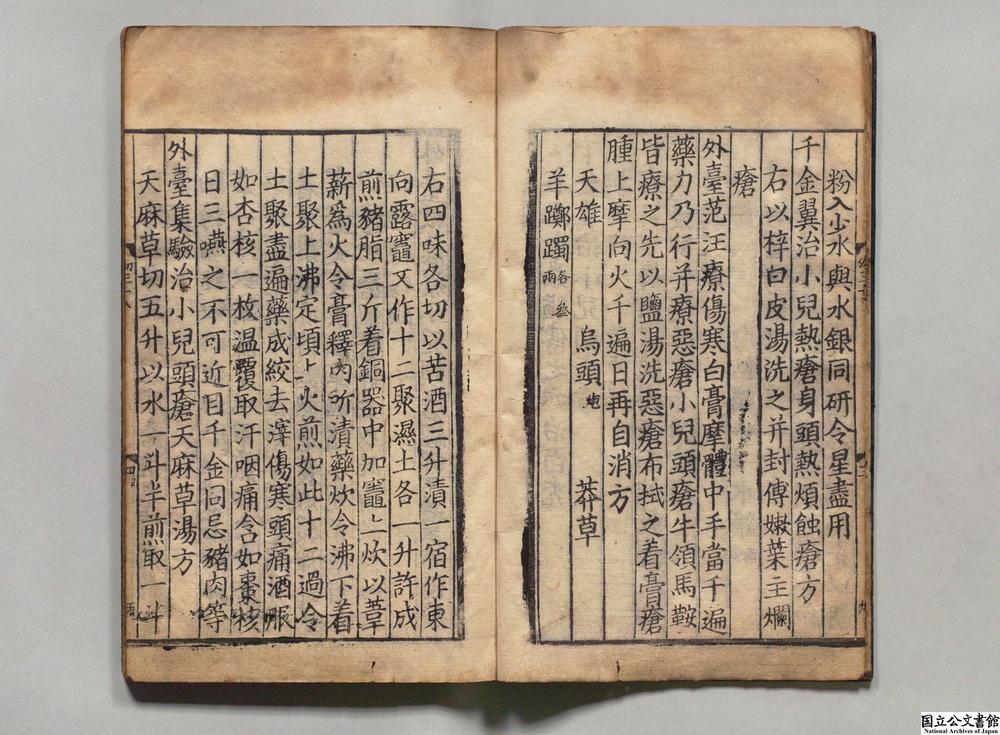 粉入少水與水銀同研令星盡用
千金翼治小兒熱瘡身頭熱煩蝕瘡方
右以梓白皮湯洗之并封傅嫩葉主爛
瘡
外臺范汪療傷寒白膏摩體中手當千遍
藥力乃行并療惡瘡小兒頭瘡牛領馬鞍
皆療之先以鹽湯洗惡瘡布拭之着膏瘡
腫上摩向火千遍日再自消方
天雄 烏頭炮 莽草
羊躑躅各叁兩
右四味各切以苦酒三升漬一宿作東
向露竈又作十二聚濕土各一升許成
煎豬脂三斤着銅器中加竈上炊以葦
薪爲火令膏釋內所漬藥炊令沸下着
土聚上沸定頃上火煎如此十二過令
土聚盡遍藥成絞去滓傷寒頭痛酒服
如杏核一枚温覆取汗咽痛含如棗核
日三嚥之不可近目千金同忌豬肉等
外臺集驗治小兒頭瘡天麻草湯方
天麻草切五升以水一斗半煎取一斗
国立公文書館
National Archives of Japan